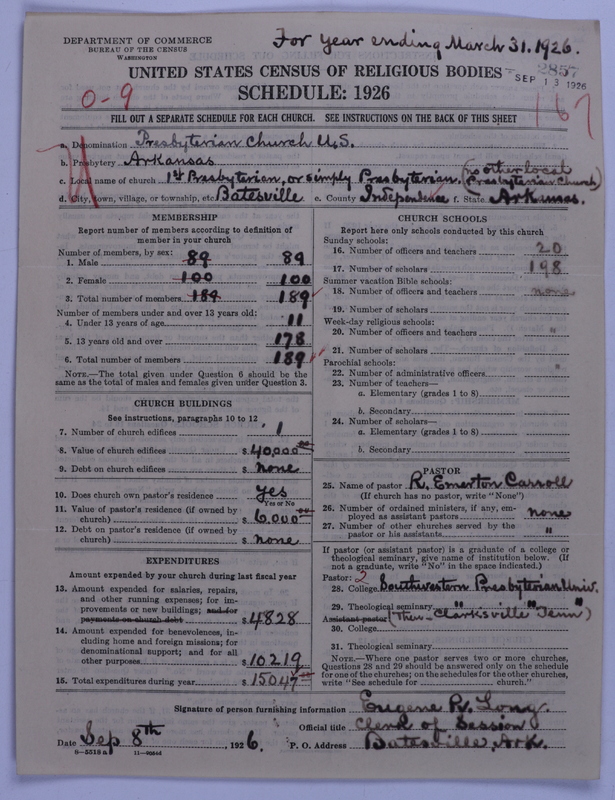 DEPARTMENT OF COMMERCE
BUREAU OF THE CENSUS
WASHINGTON
For year ending March 31. 1926.
UNITED STATES CENSUS OF RELIGIOUS BODIES
2857
SEP 13 1926
SCHEDULE: 1926
0-9
167
FILL OUT A SEPARATE SCHEDULE FOR EACH CHURCH. SEE INSTRUCTIONS ON THE BACK OF THIS SHEET
a. Denomination Presbyterian Church U.S.
b. Presbytery Arkansas
c. Local name of church 1st Presbyterian, or simply Presbyterian. (no other local Presbyterian Church)
d. City, town, village, or township, etc. Batesville e. County Independence f. State Arkansas.
MEMBERSHIP
Report number of members according to definition of
member in your church
Number of members, by sex:
1. Male 89 89
2. Female 100 100
3. Total number of members 189 189
Number of members under and over 13 years old:
4. Under 13 years of age 11
5. 13 years old and over 178
6. Total number of members 189
NOTE.—The total given under Question 6 should be the
same as the total of males and females given under Question 3.
CHURCH BUILDINGS
See instructions, paragraphs 10 to 12
7. Number of church edifices 1
8. Value of church edifices $ 40,000 00
9. Debt on church edifices $ none
10. Does church own pastor's residence yes
Yes or No
11. Value of pastor's residence (if owned by
church) $ 6,000 00
12. Debt on pastor's residence (if owned by
church) $ none
EXPENDITURES
Amount expended by your church during last fiscal year
13. Amount expended for salaries, repairs,
and other running expenses; for im-
provements or new buildings; and for
payments on church debt $ 4828
14. Amount expended for benevolences, in-
cluding home and foreign missions; for
denominational support; and for all
other purposes $ 10219
15. Total expenditures during year $ 15047
CHURCH SCHOOLS
Report here only schools conducted by this church
Sunday schools:
16. Number of officers and teachers 20
17. Number of scholars 198
Summer vacation Bible schools:
18. Number of officers and teachers none
19. Number of scholars
Week-day religious schools:
20. Number of officers and teachers "
21. Number of scholars
Parochial schools:
22. Number of administrative officers "
23. Number of teachers—
a. Elementary (grades 1 to 8)
b. Secondary
24. Number of scholars—
a. Elementary (grades 1 to 8)
b. Secondary
PASTOR
25. Name of pastor R. Emerton Carroll
(If church has no pastor, write "None")
26. Number of ordained ministers, if any, em-
ployed as assistant pastors none
27. Number of other churches served by the
pastor or his assistants "
If pastor (or assistant pastor) is a graduate of a college or
theological seminary, give name of institution below. (If
not a graduate, write "No" in the space indicated.)
Pastor: 2
28. College Southwestern Presbyterian Univ.
29. Theological seminary " " "
Assistant pastor: (Then - Clarksville Tenn)
30. College
31. Theological seminary
NOTE.—Where one pastor serves two or more churches,
Questions 28 and 29 should be answered only on the schedule
for one of the churches; on the schedules for the other churches,
write "See schedule for church."
Signature of person furnishing information Eugene R. Long.
Official title Clerk of Session
Date Sep 8th, 1926. P. O. Address Batesville, Ark.
8-5518 a